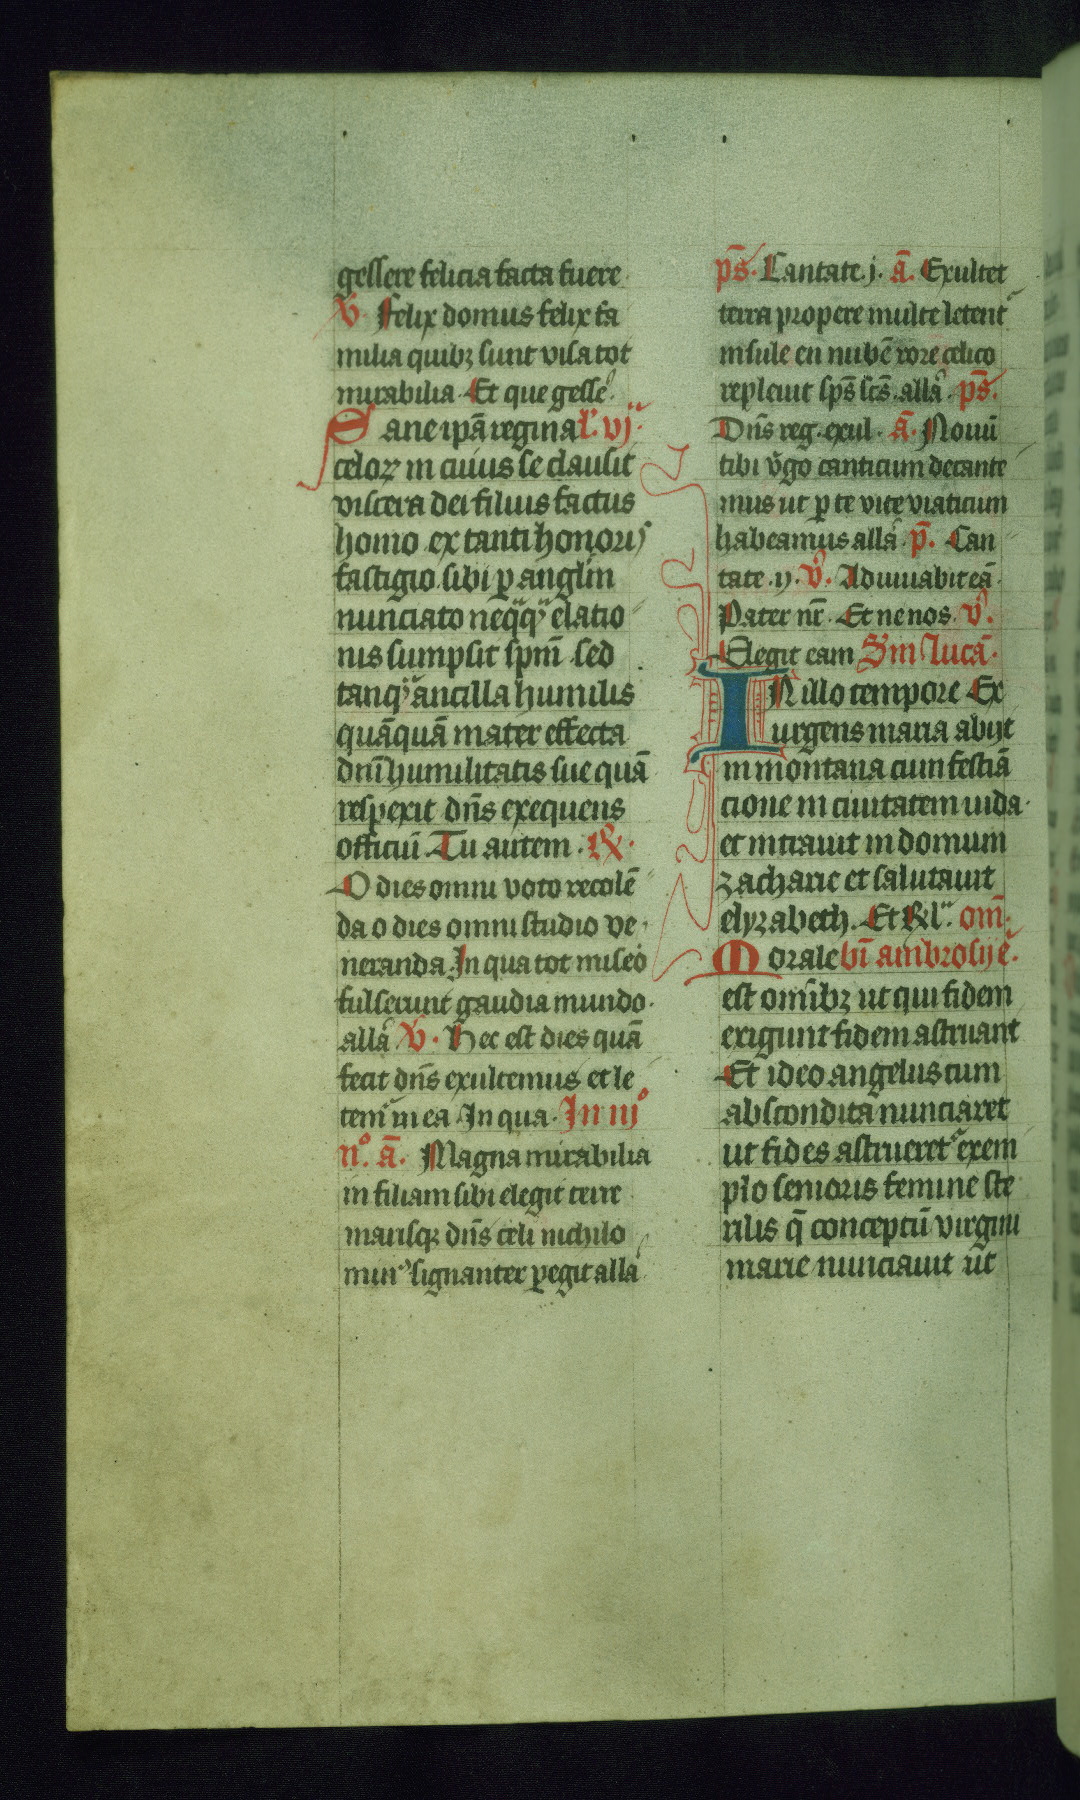 gessere felicia facta fuere
V. Felix domus felix fa
milia quibꝫ sunt visa tot
mirabilia. Et que gesse
Sane ipā regina l. vj.
celoꝝ in cuius se clausit
viscera dei filius factus
homo ex tanti honoris
fastigio sibi ꝑ angl'm
nunciato neq̄q̄ elatio
nis sumpsit sp̄m sed
tanq̄ ancilla humilis
quāquā mater effecta
dn̄i humilitatis sue quā
respexit dn̄s exequens
officiū. Tu autem. ℟.
O dies omni voto recolē
da o dies omni studio ve
neranda. In qua tot miseo
fulserunt gaudia mundo.
allā V. Hec est dies quā
fecit dn̄s exultemus et le
tem̉ in ea. In qua. In iijº
nº. ā. Magna mirabilia
in filiam sibi elegit terre
marisqꝫ dn̄s celi nichilo
min⁹ signanter ꝑegit alla
ps̄. Cantate. j. ā. Exultet
terra propere multe letent̉
insule en nubē rore celico
repleuit sp̄s sc̄s. allā. ps̄.
Dn̄s reg. exul. ā. Nouū
tibi v̉go canticum decante
mus ut ꝑ te vite viaticum
habeamus allā. p̄. Can
tate. ij. V̉. Adiuuabit eā.
Pater nr̄. Et ne nos. V̉.
Elegit eam S'm lucā.
IN illo tempore Ex
urgens maria abijt
in montana cum festiā
cione in ciuitatem iuda.
et intrauit in domum
zacharie et salutauit
elyzabeth. Et Rl'. om̄.
Morale bt̄i ambrosij ē.
est om̄ibꝫ ut qui fidem
exigunt fidem astruant
Et ideo angelus cum
abscondita nunciaret
ut fides astrueret̉ exem
plo senioris femine ste
rilis q̄ conceptū virgini
marie nunciauit ut